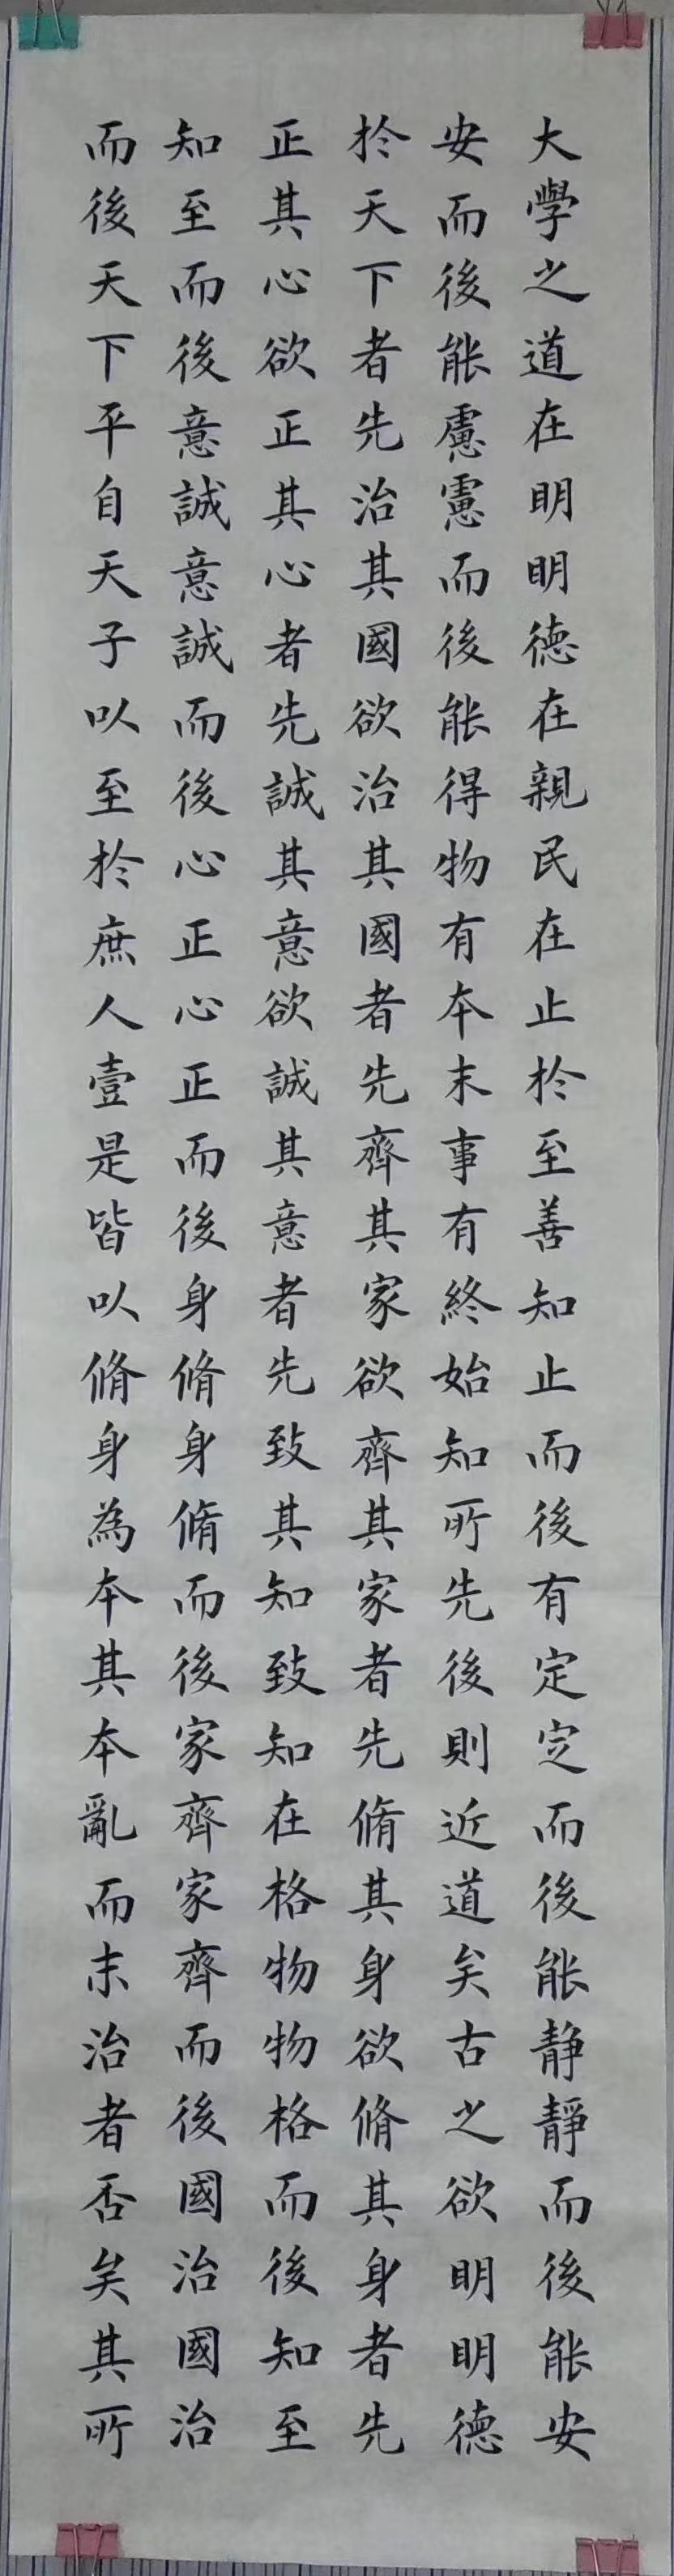 大學之道在明明德在親民在止於至善知止而後有定定而後能静靜而後能安
安而後能慮慮而後能得物有本末事有終始知所先後則近道矣古之欲明明德
於天下者先治其國欲治其國者先齊其家欲齊其家者先脩其身欲脩其身者先
正其心欲正其心者先誠其意欲誠其意者先致其知致知在格物物格而後知至
知至而後意誠意誠而後心正心正而後身脩身脩而後家齊家齊而後國治國治
而後天下平自天子以至於庶人壹是皆以脩身為本其本亂而末治者否矣其所